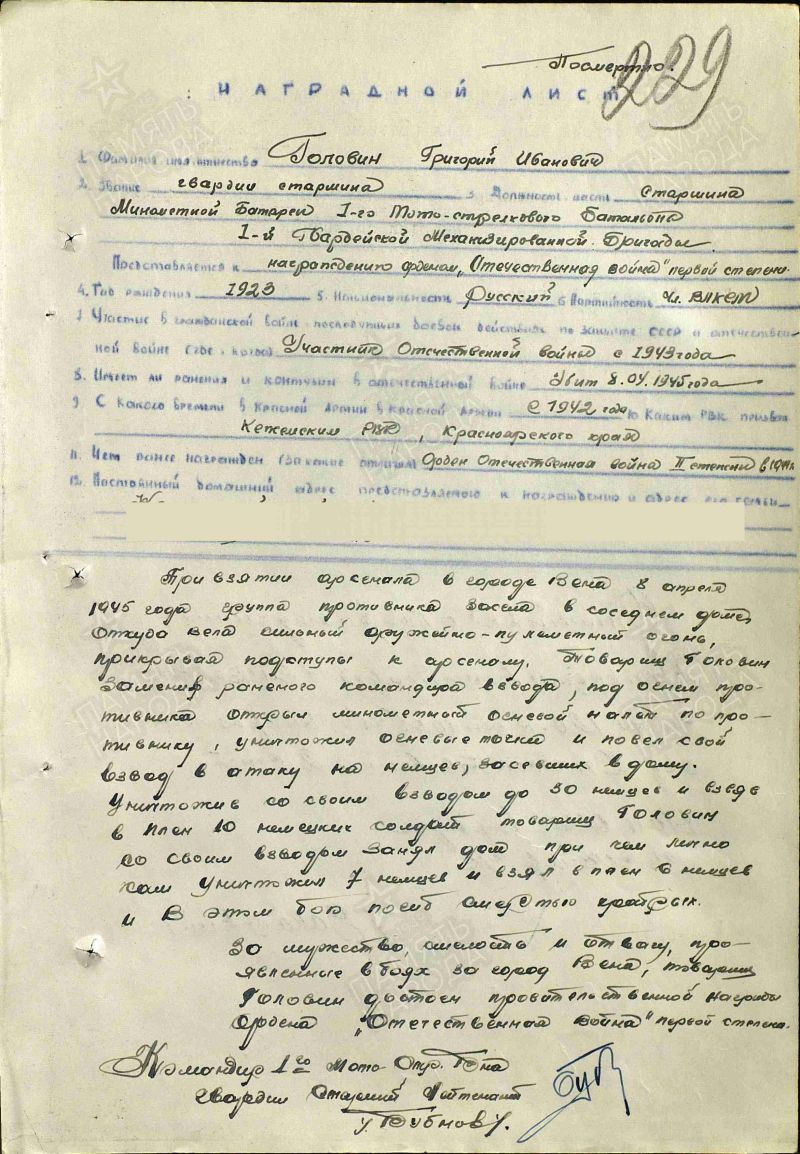 Посмертно.
229
НАГРАДНОЙ ЛИСТ
1. Фамилия имя отчество Головин Григорий Иванович
2. Звание гвардии старшина 3. Должность часть Старшина
Минометной Батареи 1-го Мото-стрелкового Батальона
1-й Гвардейской Механизированной Бригады.
Представляется к награждению орденом „Отечественная война" первой степени.
4. Год рождения 1923 5. Национальность Русский 6 Партийность Чл. ВЛКСМ
7. Участие в гражданской войне, последующих боевых действиях по защите СССР и отечествен-
ной войне (где, когда) Участник Отечественной войны с 1943 года
8. Имеет ли ранения и контузии в отечественной войне Убит 8.04.1945 года
9. С какого времени в Красной Армии в красной армии С 1942 года 10 Каким РВК призван
Кежемским РВК, Красноярского края
11. Чем ранее награжден (за какие отличия) Орден Отечественная война II степени в
12. Постоянный домашний адрес представляемого к награждению и адрес его семьи
При взятии арсенала в городе Вена 8 апреля
1945 года группа противника засела в соседнем доме,
откуда вела сильный оружейно-пулеметный огонь,
прикрывая подступы к арсеналу. Товарищ Головин
заменив раненого командира взвода, под огнем про-
тивника открыл минометный огневой налет по про-
тивнику, уничтожил огневые точки и повел свой
взвод в атаку на немцев, засевших в дому.
Уничтожив со своим взводом до 30 немцев и взяв
в плен 10 немецких солдат товарищ Головин
со своим взводом занял дом при чем лично
сам уничтожил 7 немцев и взял в плен 6 немцев
и в этом бою погиб смертью храбрых.
За мужество, смелость и отвагу, про-
явленные в боях за город Вена, товарищ
Головин достоин правительственной награды
Ордена „Отечественная война" первой степени.
Командир 1го Мото Стр. Б-на
гвардии Старший Лейтенант
/Бубнов/.